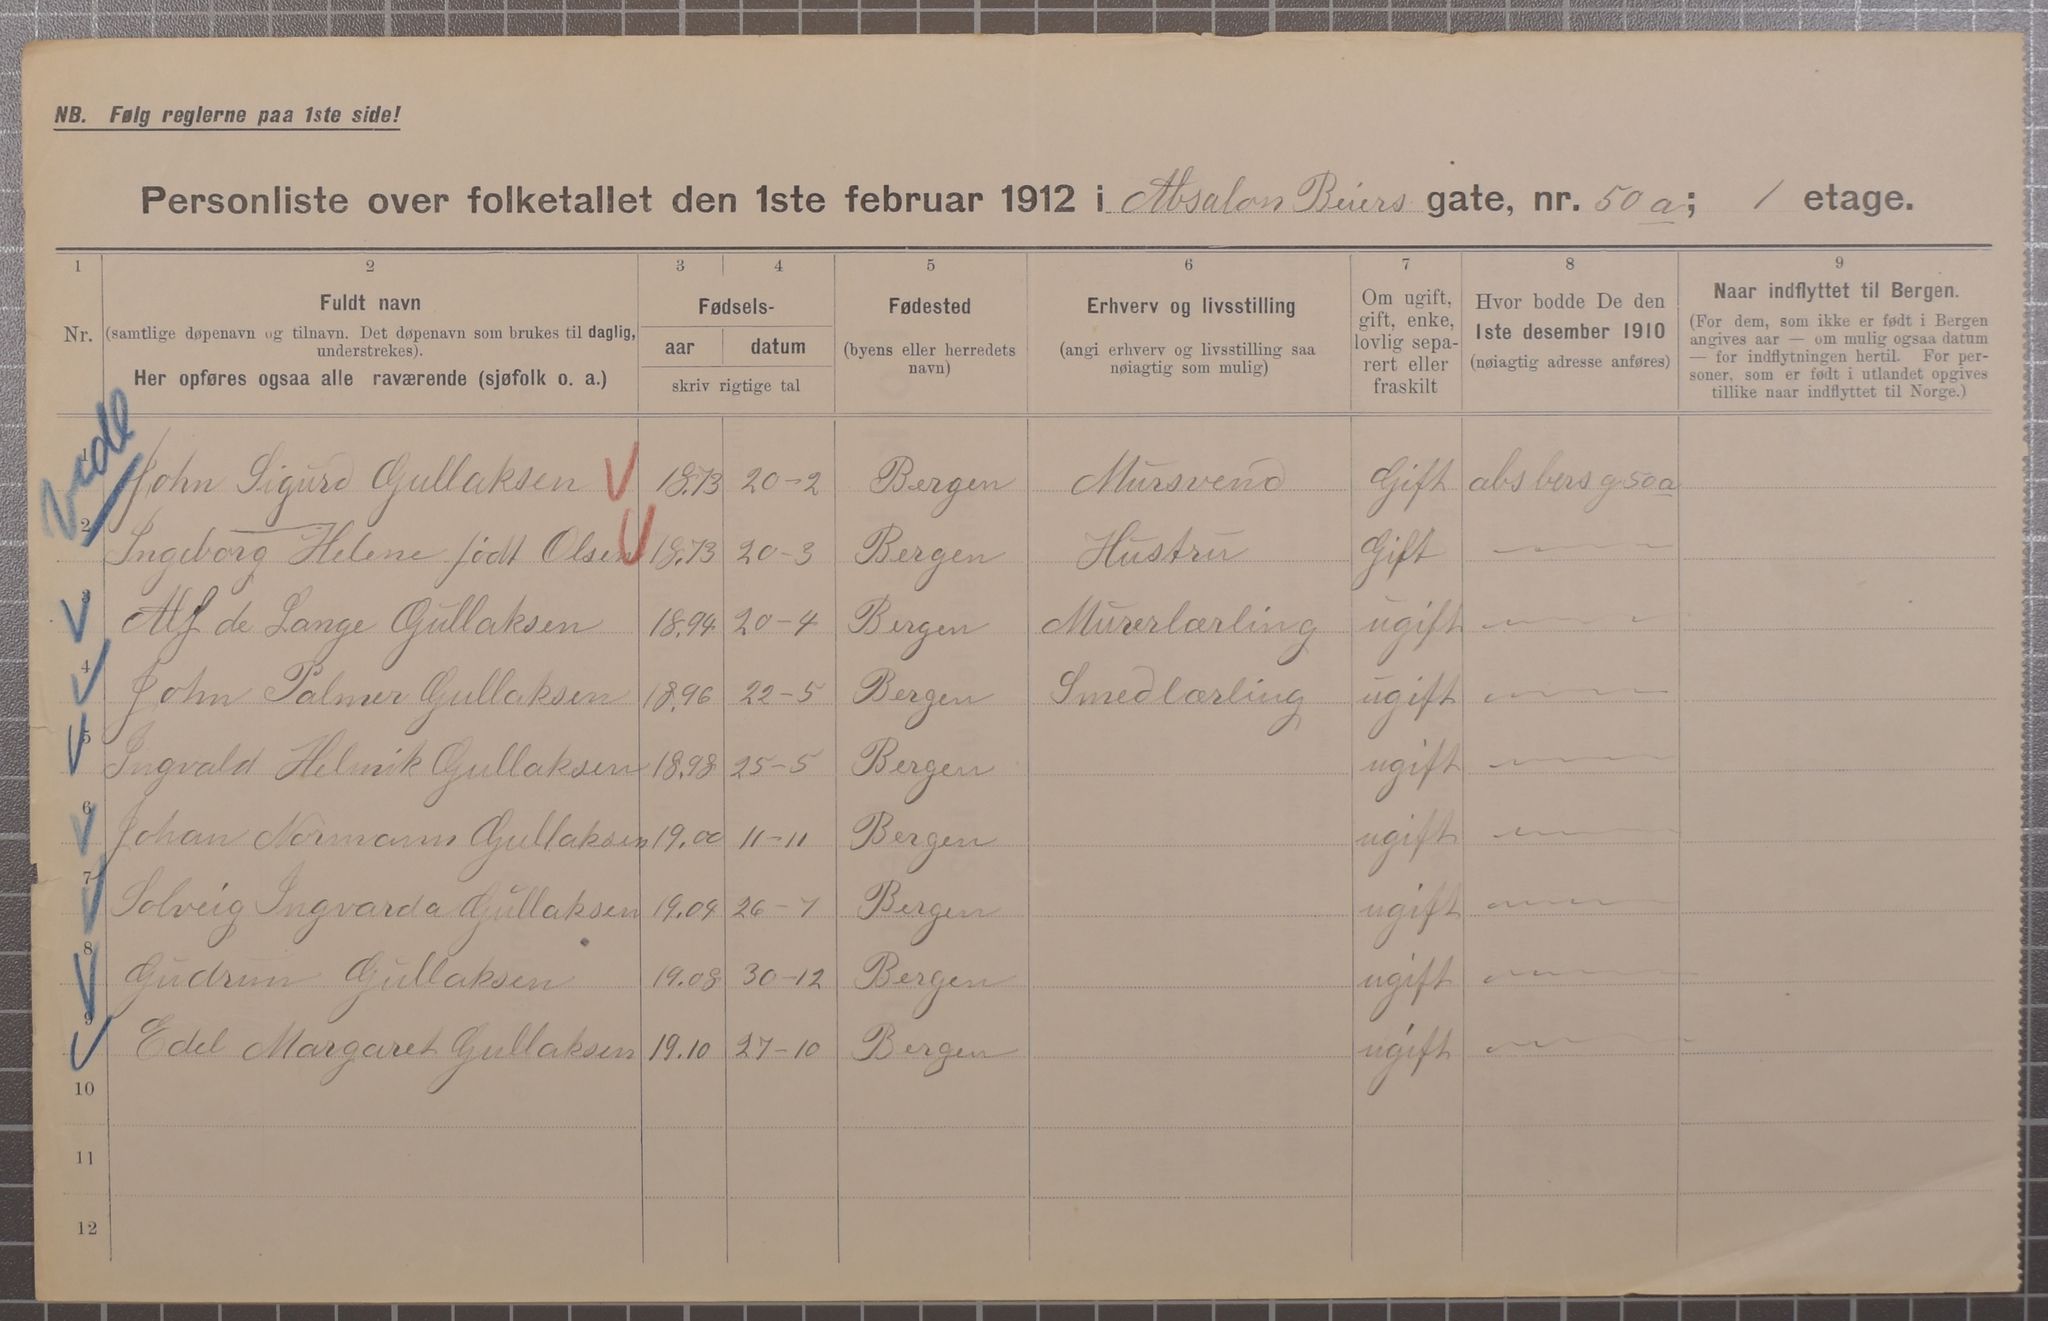 NB. Følg reglerne paa 1ste side!
Personliste over folketallet den 1ste februar 1912 i Absalon Beiers gate, nr. 50 a; 1 etage.
1 2 3 4 5 6 7 8 9
Nr.
Fuldt navn
(samtlige døpenavn og tilnavn. Det døpenavn som brukes til daglig,
understrekes).
Her opføres ogsaa alle raværende (sjøfolk o. a.)
Fødsels-
aar datum
skriv rigtige tal
Fødested
(byens eller herredets
navn)
Erhverv og livsstilling
(angi erhverv og livsstilling saa
nøiagtig som mulig)
Om ugift,
gift, enke,
lovlig sepa-
rert eller
fraskilt
Hvor bodde De den
1ste desember 1910
(nøiagtig adresse anføres)
Naar indflyttet til Bergen.
(For dem, som ikke er født i Bergen
angives aar — om mulig ogsaa datum
— for indflytningen hertil. For per-
soner, som er født i utlandet opgives
tillike naar indflyttet til Norge.)
1 John Sigurd Gullaksen 18.73 20-2 Bergen Mursvend Gift abs bers g 50a
2 Ingeborg Helene født Olsen 18.73 20-3 Bergen Hustru Gift
3 Alf de Lange Gullaksen 18.94 20-4 Bergen Murerlærling ugift
4 John Palmer Gullaksen 18.96 22-5 Bergen Smedlærling ugift
5 Ingvald Helmik Gullaksen 18.98 25-5 Bergen ugift
6 Johan Normann Gullaksen 19.00 11-11 Bergen ugift
7 Solveig Ingvarda Gullaksen 19.04 26-7 Bergen ugift
8 Gudrun Gullaksen 19.08 30-12 Bergen ugift
9 Edel Margaret Gullaksen 19.10 27-10 Bergen ugift
10
11
12